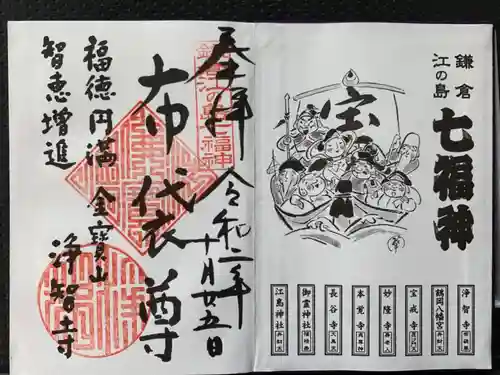 鎌倉
江の島
七福神
宝
浄智寺
鶴岡八幡宮 弁財天
宝戒寺
妙隆寺
本覚寺
長谷寺
御霊神社
江島神社 弁財天
奉拝
令和二年
十月廿五日
布袋尊
福徳円満
智恵増進
金寶山
浄智寺